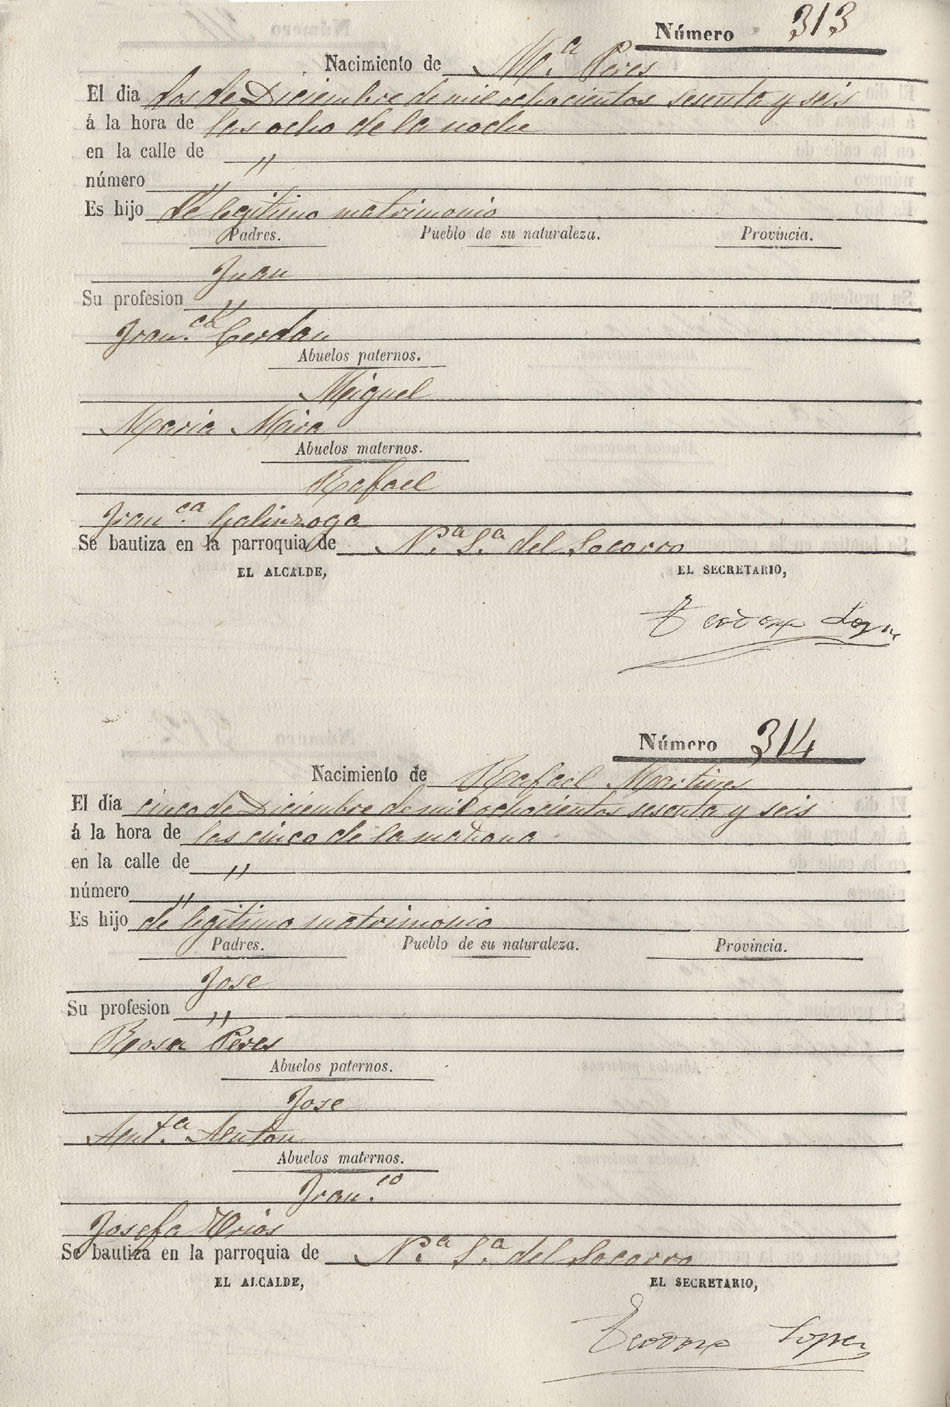 Número 313
Nacimiento de M.ª Peres
El dia dos de Diciembre de mil ochocientos sesenta y seis
á la hora de las ocho de la noche
en la calle de "
número "
Es hijo de legitimo matrimonio
Padres. Pueblo de su naturaleza. Provincia.
Juan
Su profesion "
Fran.ca Cerdan
Abuelos paternos.
Miguel
Maria Mira
Abuelos maternos.
Rafael
Fran.ca Galinzoga
Se bautiza en la parroquia de N.ª S.ª del Socorro
EL ALCALDE, EL SECRETARIO,
Teodoro Lopez
Número 314
Nacimiento de Rafael Martines
El dia cinco de Diciembre de mil ochocientos sesenta y seis
á la hora de las cinco de la mañana
en la calle de "
número "
Es hijo de legitimo matrimonio
Padres. Pueblo de su naturaleza. Provincia.
Jose
Su profesion "
Rosa Peres
Abuelos paternos.
Jose
Ant.ª Anton
Abuelos maternos.
Fran.co
Josefa
Se bautiza en la parroquia de N.ª S.ª del Socorro
EL ALCALDE, EL SECRETARIO,
Teodoro Lopez